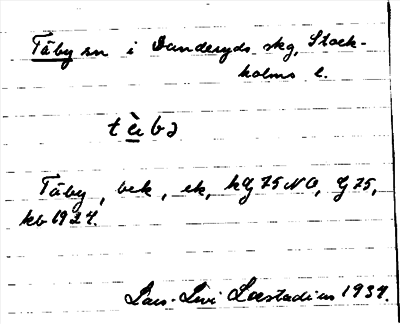 Täby sn i Danderyds skg, Stock-
holms l.
tä̀bə
Täby, bek, ek, kG 75 NO, G 75,
kb 1927.
Lars-Levi Læstadius 1937.